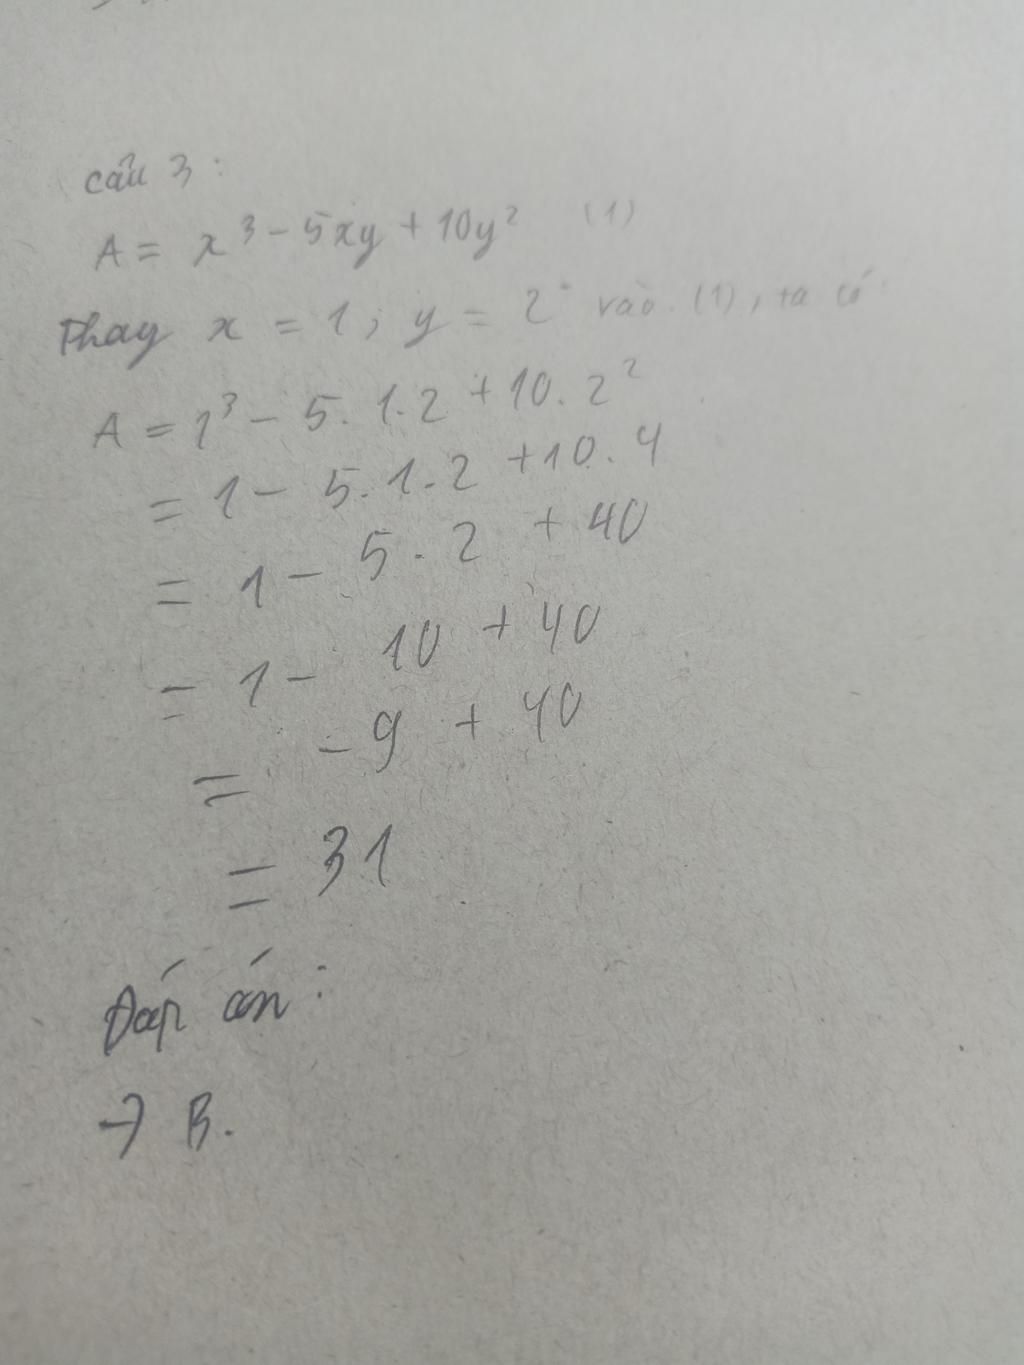 câu 3:
A = x³ - 5xy + 10y² (1)
Thay x = 1; y = 2 vào (1), ta có
A = 1³ - 5.1.2 + 10.2²
= 1 - 5.1.2 + 10.4
= 1 - 5.2 + 40
= 1 - 10 + 40
= -9 + 40
= 31
Đáp án:
→ B.